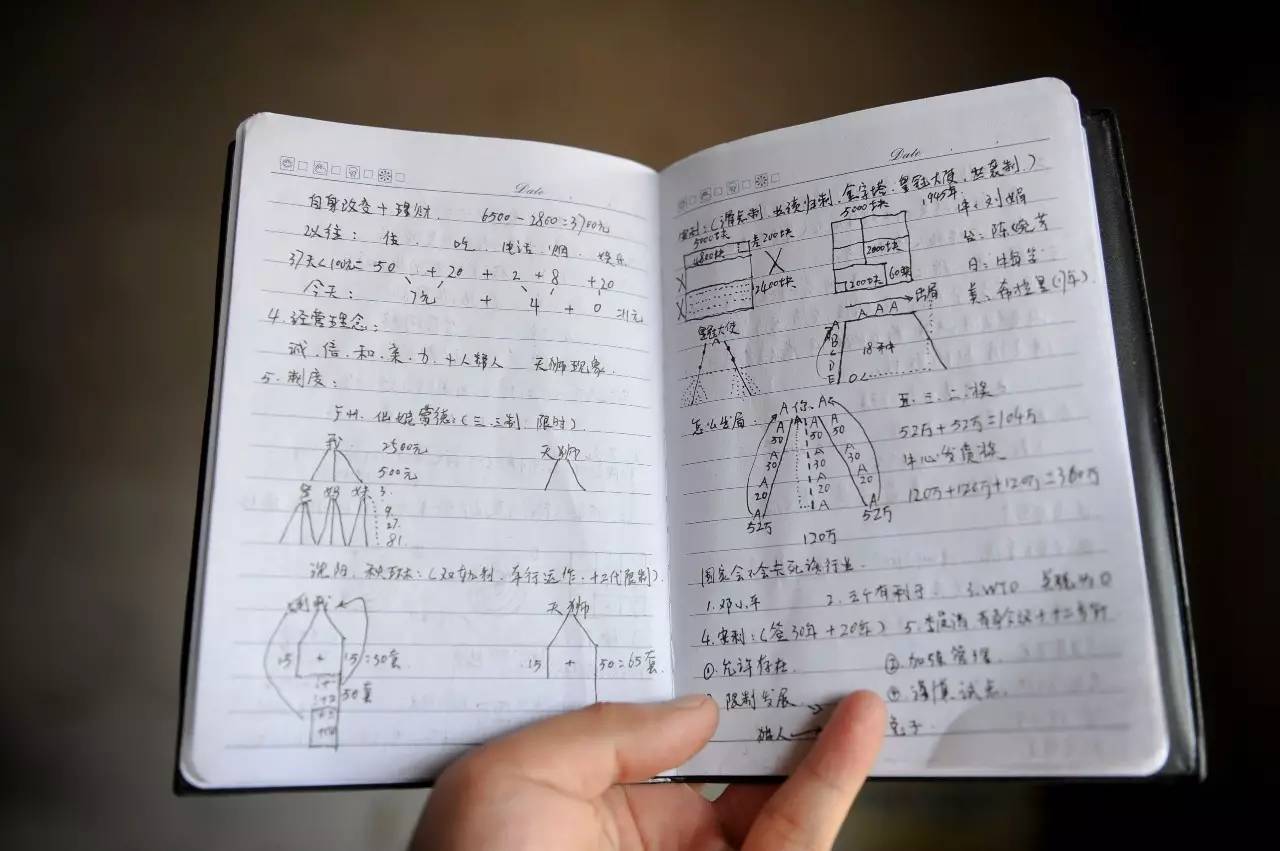 Date
自身改变+理财. 6500-2800=3700元
以往: 住. 吃 电话. 烟. 娱乐
37天<100元= 50 + 20 + 2 + 8 + 20
今天: 7元 + 4 + 0 =11元
4. 经营理念:
诚.信.和.亲.力.+人帮人 天狮现象.
5. 制度:
广州.化妆 (三.三制. 限时)
我 2500元 天狮
500元
妈 妹 3.
9.
27.
81.
沈阳. (双轨制. 车行运作. 十二代限制).
我 天狮
15 + 15=30套 15 + 50=65套
50套
Date
安利: 金字塔. 皇冠大使. 世袭制.)
5000块 差200块 5000块 1945年.
4800块 2000块
2400块 1200块 60块
X X X
刘娟
台: 陈婉芬
日:
美:
皇冠大使
A A A 出局
A
B
C
D
E
18种
怎么出局: A 你. A
五.三.二.奖
50 50 50
A A A
30 30 30
A A A
20 20 20
A A A
52万 52万
120万
52万+52万=104万
120万+120万+120万=360万
国家会不会卡死该行业.
1. 邓小平 2. 三个有利于. 3. WTO
4. 安利: (签30年+20年) 5.
① 允许存在. ② 加强管理.
限制发展 ④ 谨慎试点.
猎人 兔子.